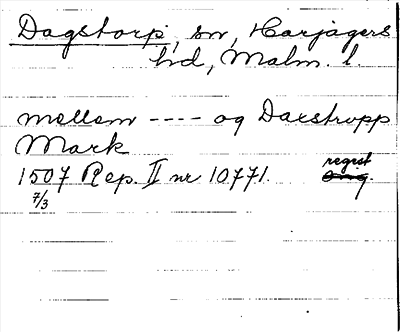 Dagstorp, sn, Harjagers
hd, Malm. l.
mellem ---- og Daxstropp
Mark
1507 Rep. II nr 10771. regist
7/3 orig.